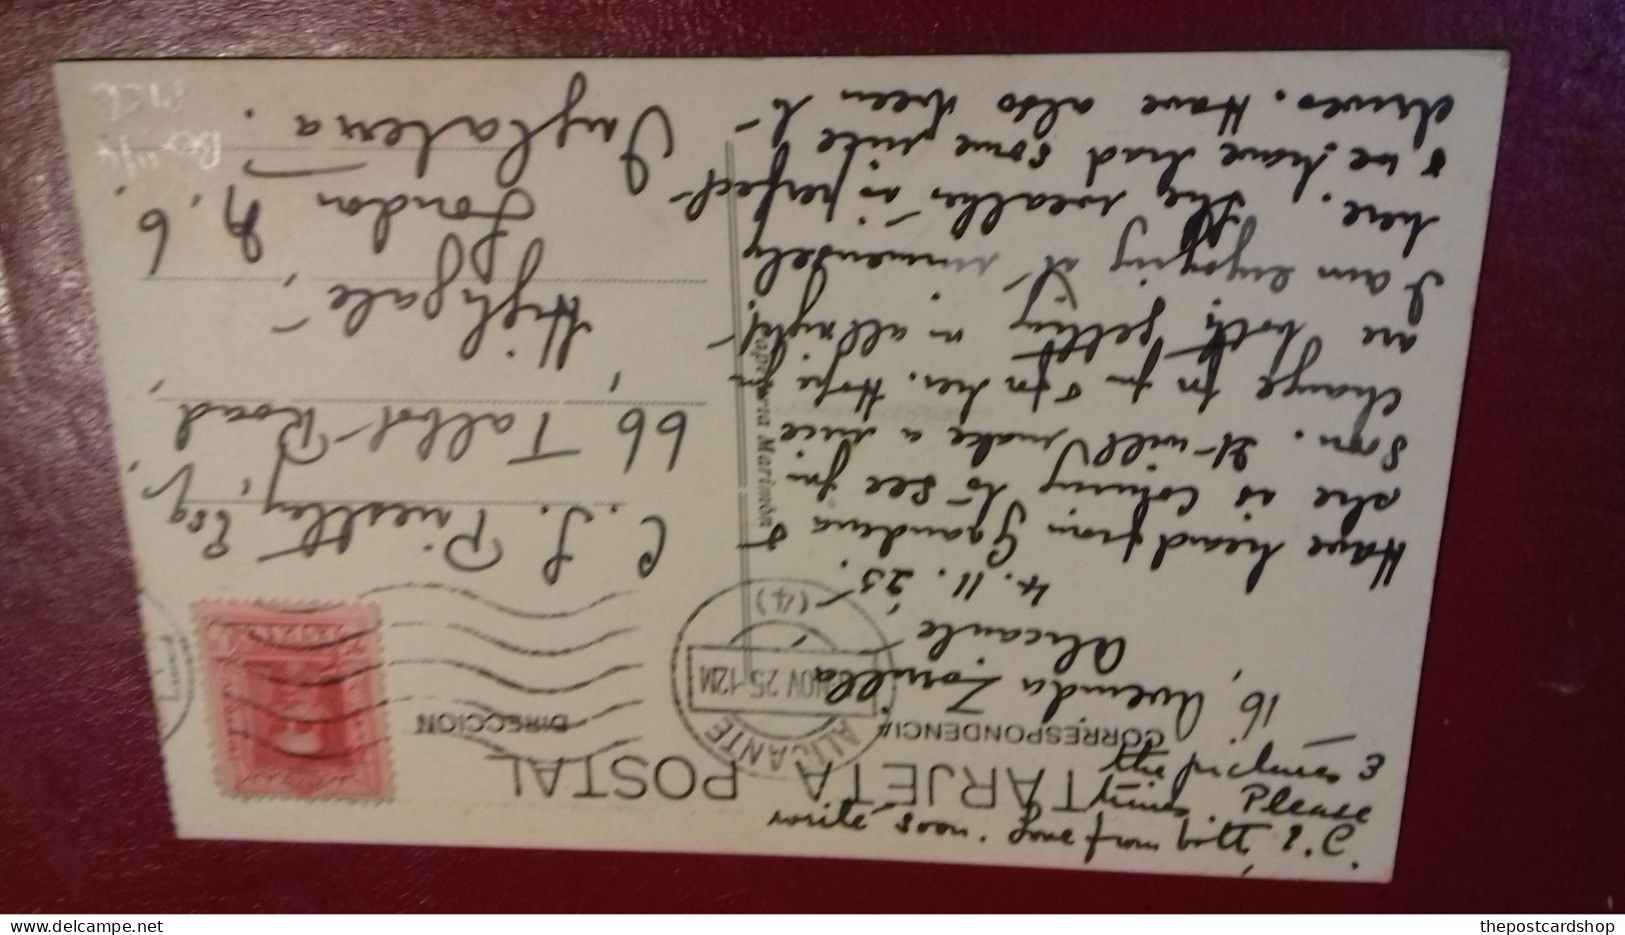 write soon. Love from both I.C.
times. Please
the pictures 3
TARJETA POSTAL
CORRESPONDENCIA
DIRECCION
16, Avenida Zorrilla
Alicante
4. 11. 25.
Have heard from Grandma &
she is coming to see you
soon. It will make a nice
change for you & for her. Hope you
are both getting on allright.
I am enjoying it immensely
here. The weather is perfect
& we have had some nice
drives. Have also been to
ALICANTE
NOV 25 12M
(4)
Papeleria Marimón
C. J. Priestley, Esq,
66, Talbot Road,
Highgate,
London N. 6,
Inglaterra.
thepostcardshop